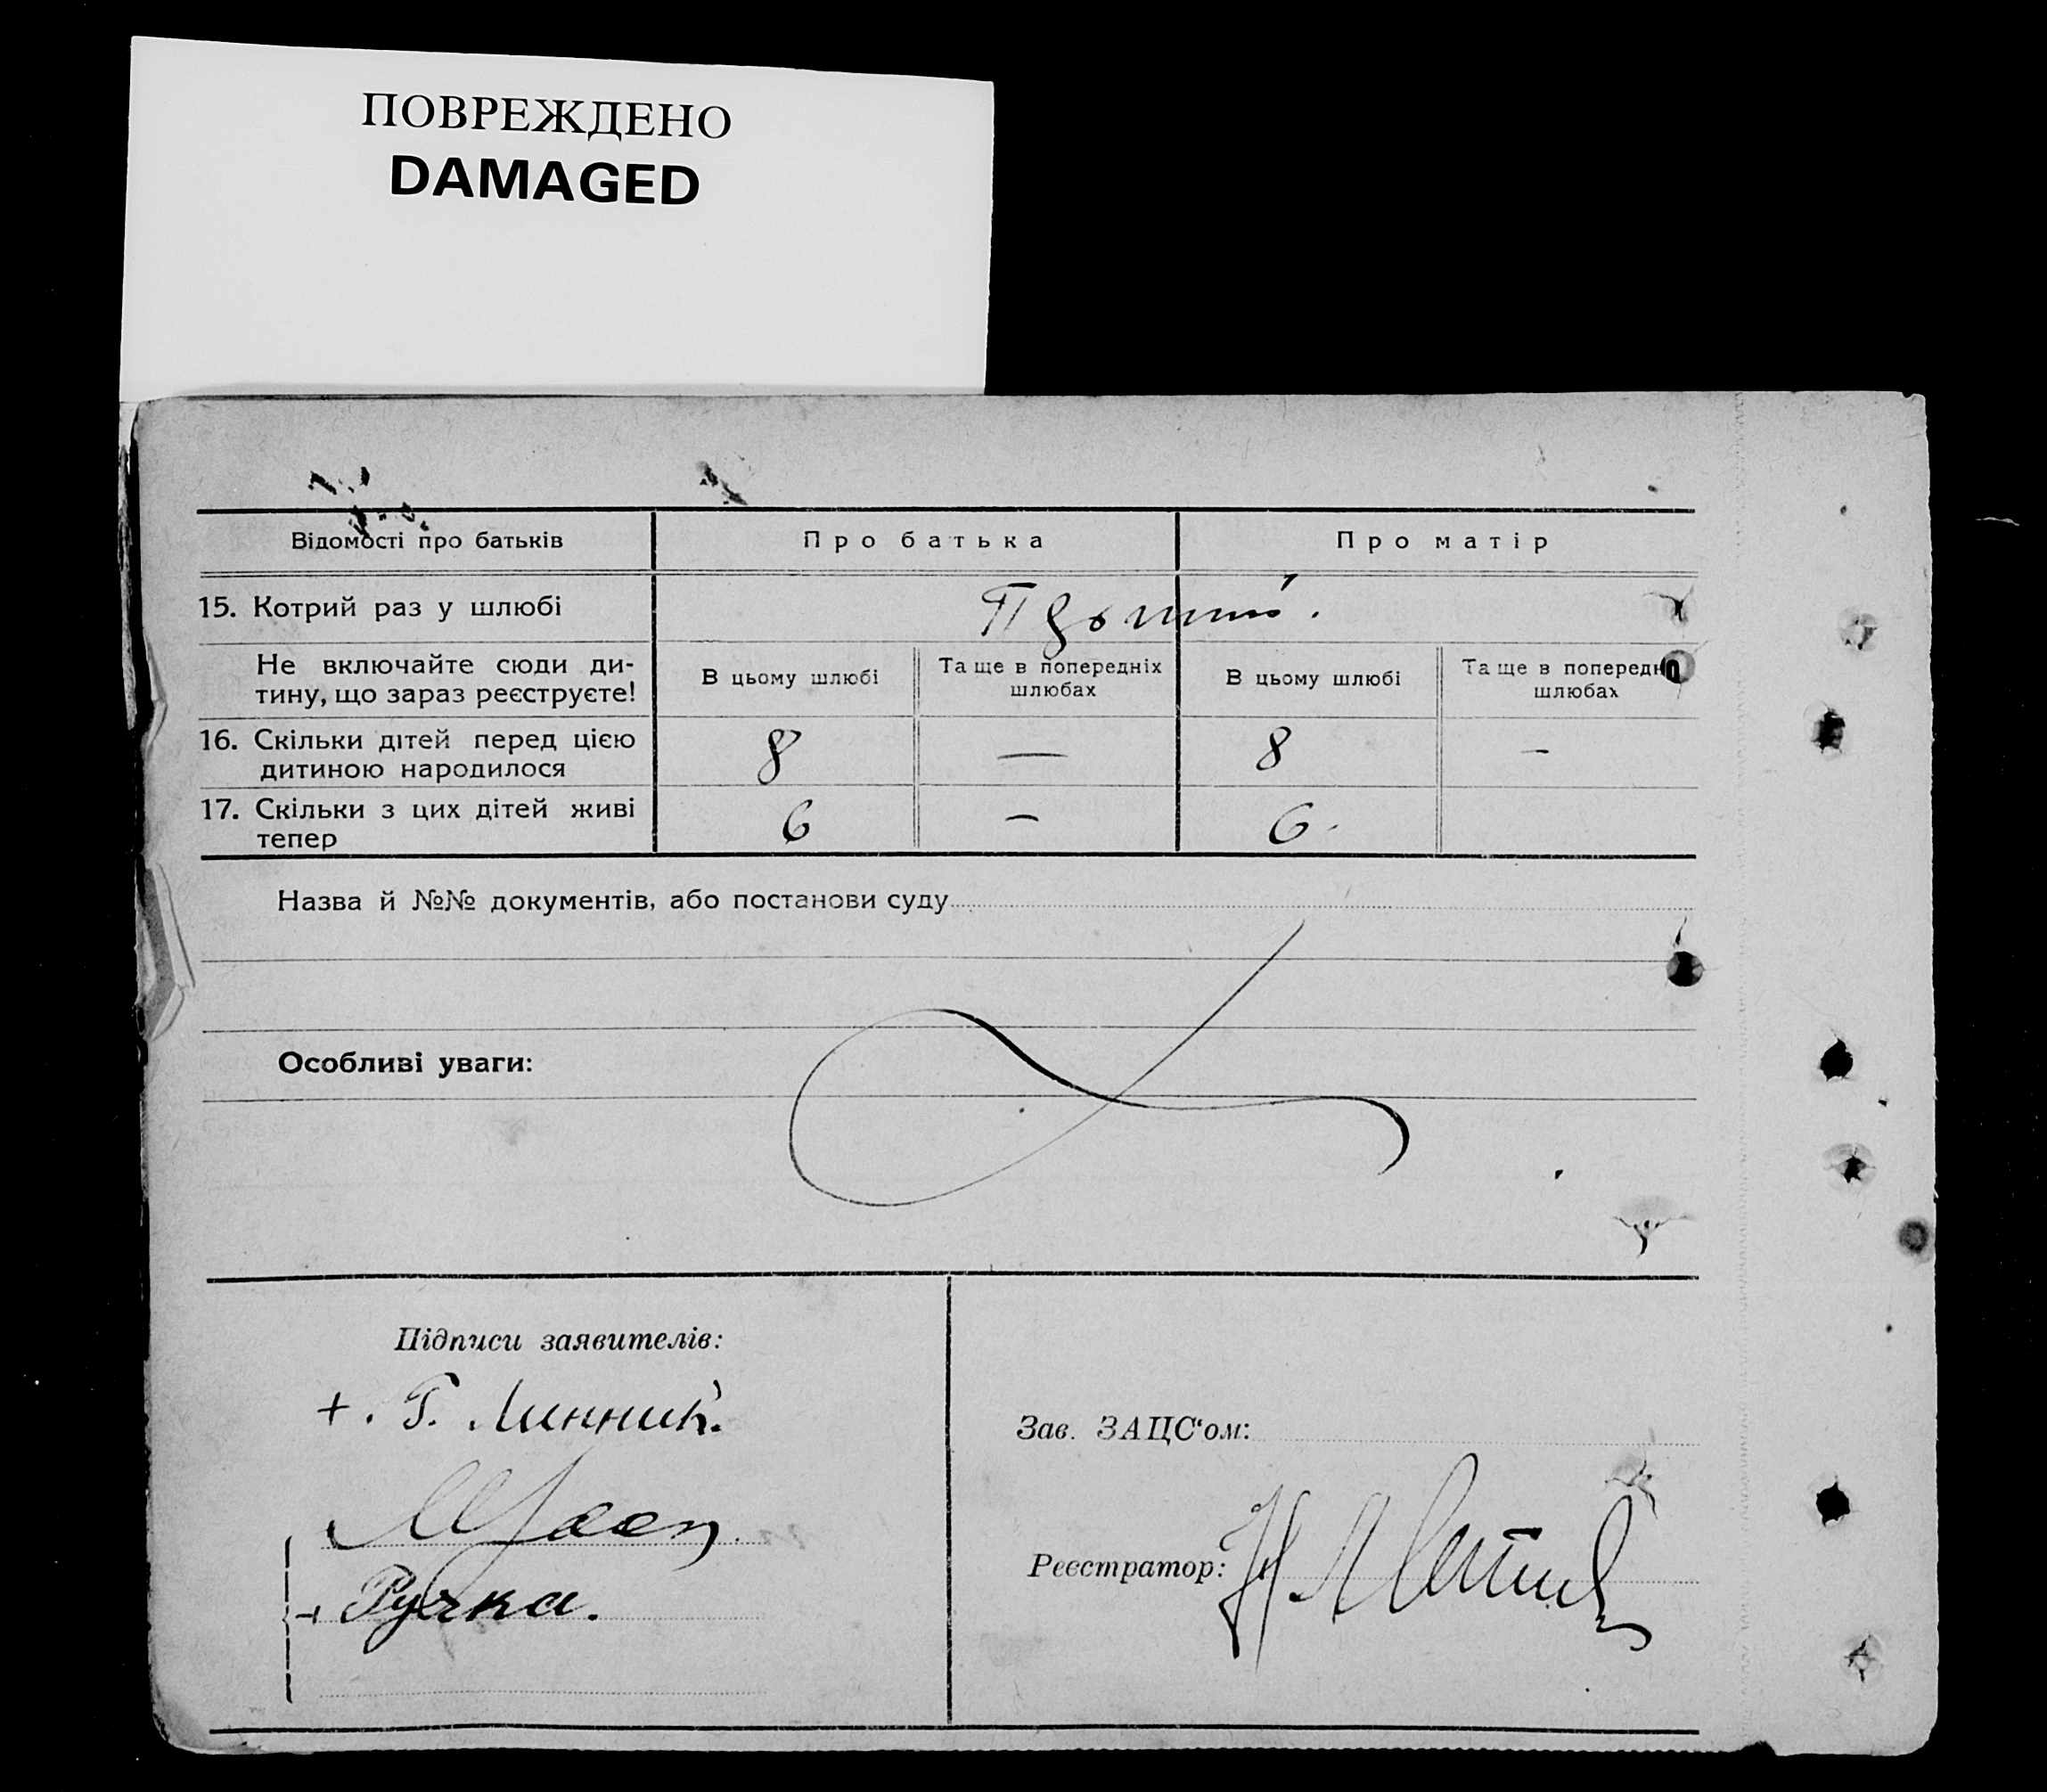 ПОВРЕЖДЕНО
DAMAGED
Відомості про батьків
Про батька
Про матір
15. Котрий раз у шлюбі
Не включайте сюди ди-
тину, що зараз реєструєте!
В цьому шлюбі
Та ще в попередніх
шлюбах
В цьому шлюбі
Та ще в попередн
шлюбах
16. Скільки дітей перед цією
дитиною народилося
8
—
8
–
17. Скільки з цих дітей живі
тепер
6
–
6.
Назва й №№ документів, або постанови суду
Особливі уваги:
Підписи заявителів:
+. Г. Линник.
+ Ручка.
Зав. ЗАЦС‘ом:
Реєстратор: